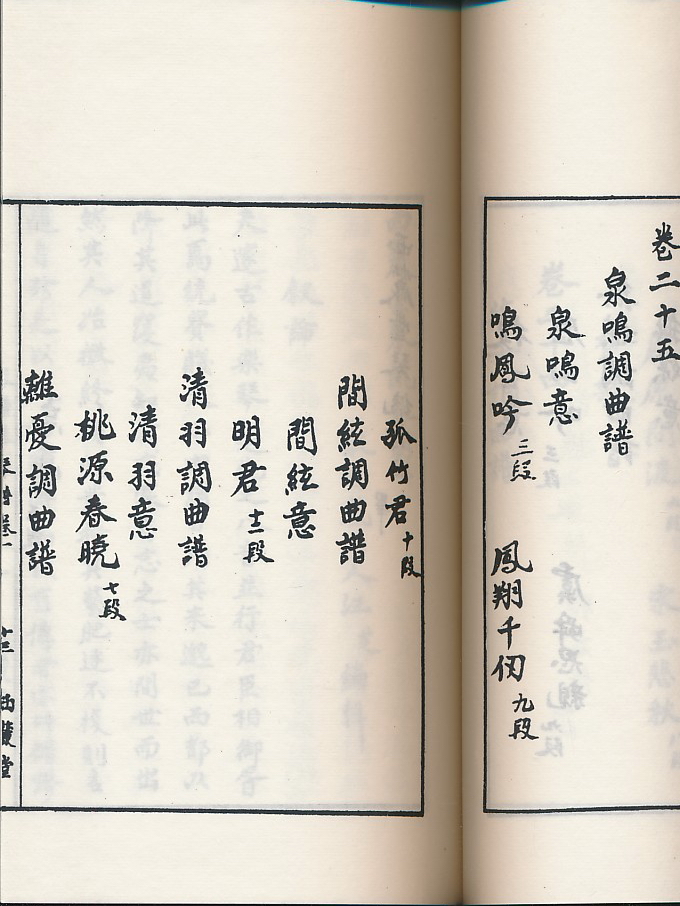 卷二十五
泉鳴調曲譜
泉鳴意
鳴鳳吟 三段 鳳翔千仞 九段
孤竹君 十段
間絃調曲譜
間絃意
明君 十二段
清羽調曲譜
清羽意
桃源春曉 七段
離憂調曲譜
琴譜卷一 十三